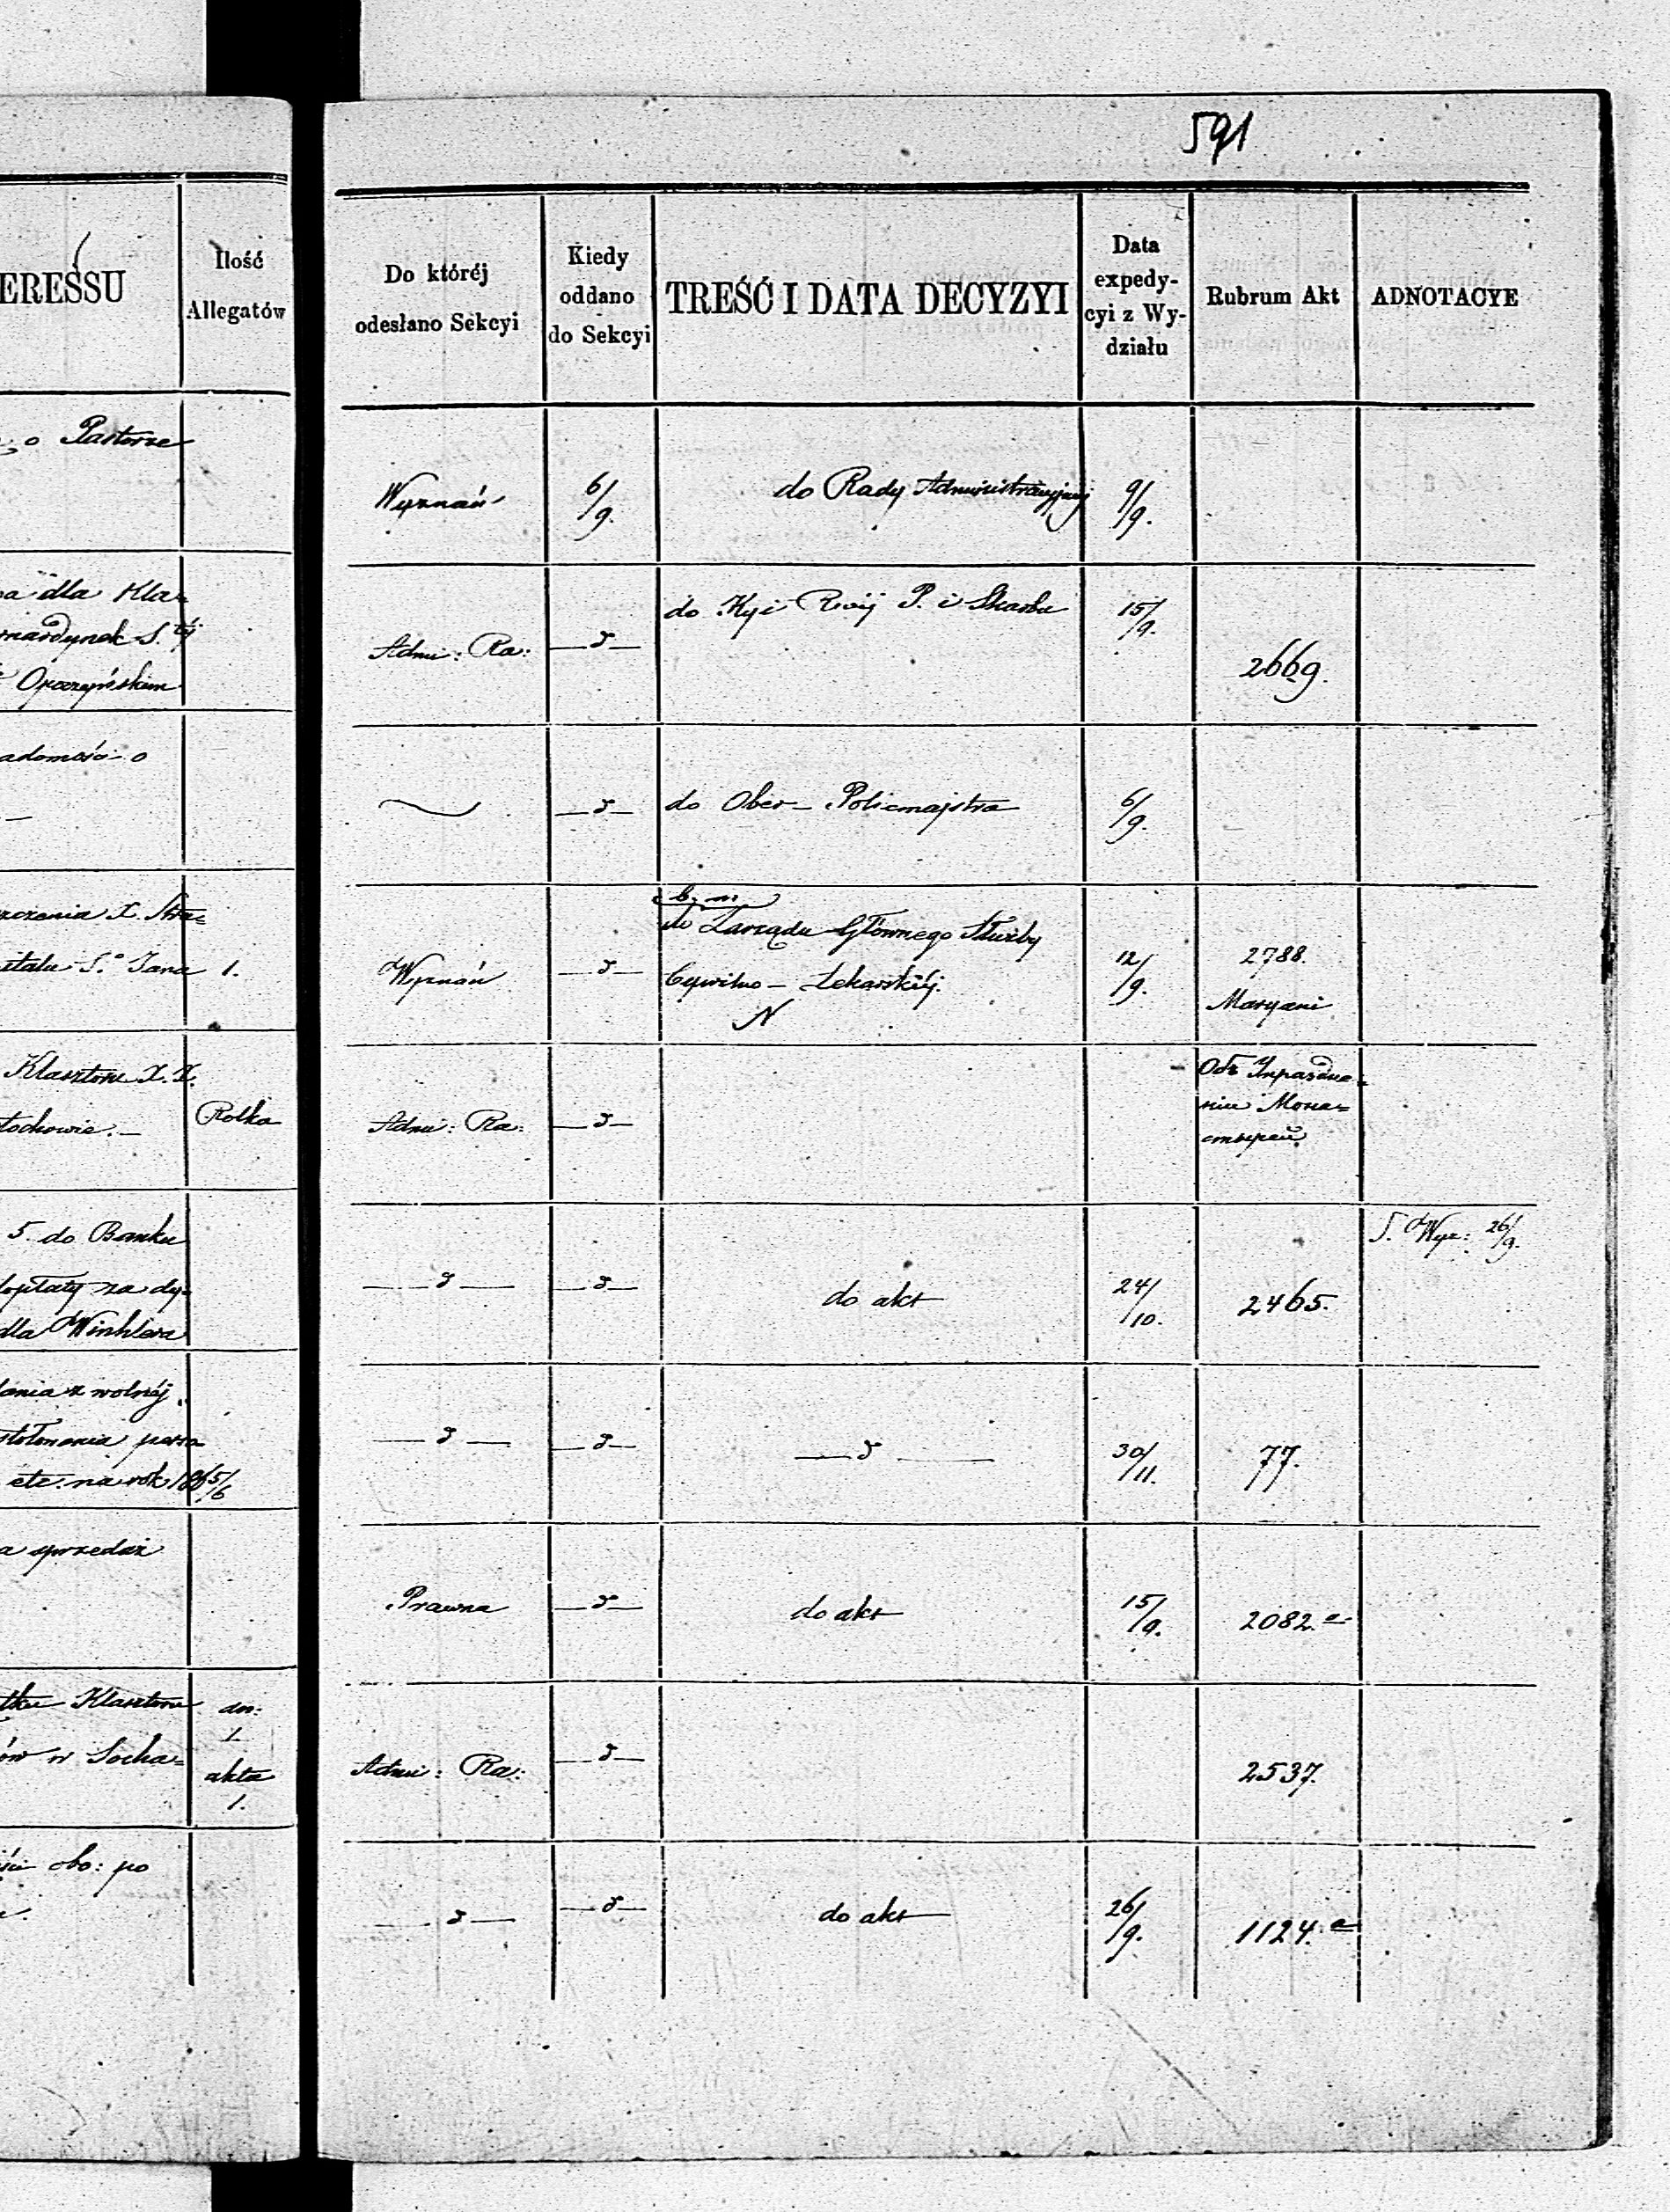 591
ERESSU
Ilość
Allegatów
Do któréj
odesłano Sekcyi
Kiedy
oddano
do Sekcyi
TREŚĆ I DATA DECYZYI
Data
expedy-
cyi z Wy-
działu
Rubrum Akt
ADNOTACYE
o Pastorze
Wyznań
6/9.
do Rady Administracyjnej
9/9.
a dla Kla=
nardynek S.téj
Opoczyńskim
Admi: Ra:
—d—
do Kyi Rwéj P. i Skarbu
15/9.
2669.
adomości o
—d—
do Ober-Policmajstra
6/9.
czenia X. Stra=
italu S.o Jana
1.
Wyznań
—d—
b. m.
do Zarządu Głównego Służby
Cywilno-Lekarskiéj.
N
12/9.
2788.
Maryani
Klasztoru X.X.
tochowie.—
Rolka
Admi: Ra:
—d—
Объ Упраздне=
нiи Мона=
стырей
5. do Banku
dopłaty za dy=
dla Winklera
—d—
—d—
do akt
24/10.
2465.
S. Wyz: 26/9.
dania z wolnéj
stołowania
etc. na rok 1865/6
—d—
—d—
—d—
30/11.
77.
a sprzedaż
Prawna
—d—
do akt
15/9.
2082.a
tku Klasztoru
ów w Socha=
do:
1
akta
1.
Admi: Ra:
—d—
2537.
obo: po
—d—
—d—
do akt
26/9.
1124.a